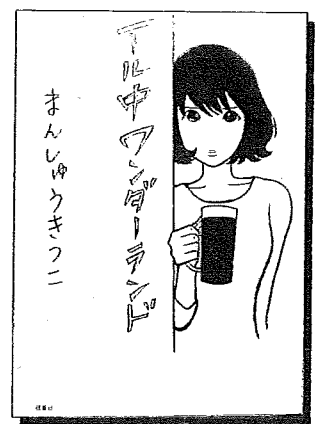 アル中ワンダーランド
まんしゅうきつこ